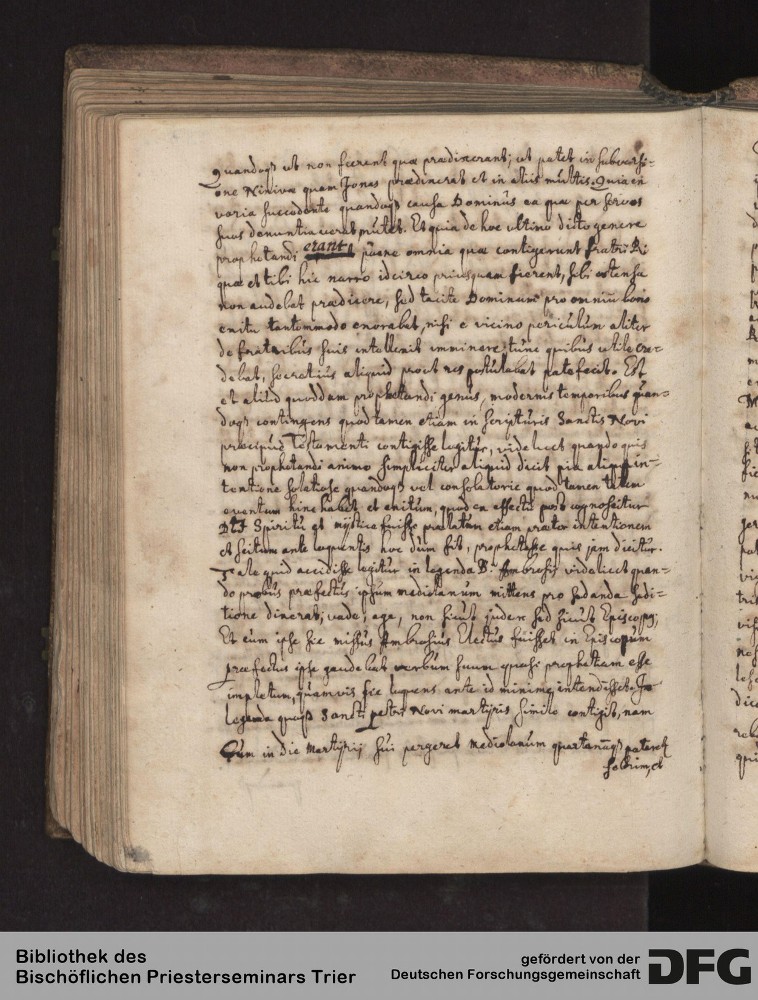 Quandoq₃ ut non fierent quæ prædixerant; ut patet in subversi=
one Ninivæ quam Jonas prædixerat et in aliis multis. Quia en
varia succedente quandoq₃ causa Dominus ea quæ per servos
suos denuntiaverat mutet. Et quia de hoc ultimo dicto genere
prophetandi erant pæne omnia quæ contigerunt fratri R:
quæ et tibi hic narro idcirco priusquam fierent, sibi ostensa
non audebat prædicere, sed tacite Dominum pro omniū bono
exitu tantummodo exorabat, nisi e vicino periculum aliter
de fratribus suis intellexit imminere, tunc quibus utile cre=
debat, secretius aliquid prout res postulabat patefecit. Est
et aliud quoddam prophetandi genus, modernis temporibus quan=
doq₃ contingens quod tamen etiam in scripturis Sanctis Novi
præcipue Testamenti contigisse legitur, videlicet quando quis
non prophetandi animo simpliciter aliquid dicit pia aliqua in=
tentione solatiose quandoq₃ vel consolatorie quod tamen talem
eventum hinc habet, et exitum, quod ex effectu post cognoscitur
Spiritu et mystice fuisse prælatum etiam præter intentionem
et scitum ante loquentis hoc dum fit, prophetasse quis jam dicitur.
Tale quid accidisse legitur in legenda B. Ambrosij videlicet quan=
do probus præfectus ipsum mediolanum mittens pro sedanda sedi=
tione dixerat; vade, age, non sicut judex sed sicut Episcopq;
Et cum ipse sic missus Ambrosius Electus fuisset in Episcopum
præfectus ipse gaudebat verbum suum quasi prophetiam esse
impletum, quamvis sic loquens ante id minime intendisset. In
legenda quoq₃ Sancti petri Novi martyris simile contigit, nam
Cum in die Martyrij sui pergeret mediolanum quartanāq₃ pateretr
febrim, et
Bibliothek des
Bischöflichen Priesterseminars Trier
gefördert von der
Deutschen Forschungsgemeinschaft
DFG